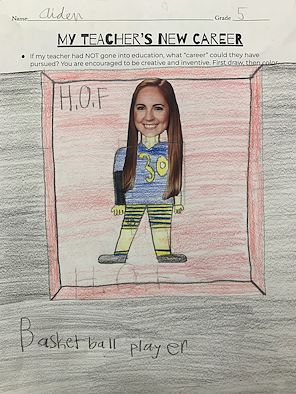 Name: Aiden Grade 5
MY TEACHER'S NEW CAREER
• If my teacher had NOT gone into education, what "career" could they have
pursued? You are encouraged to be creative and inventive. First draw, then color
H.O.F
30
H O F
Basketball player